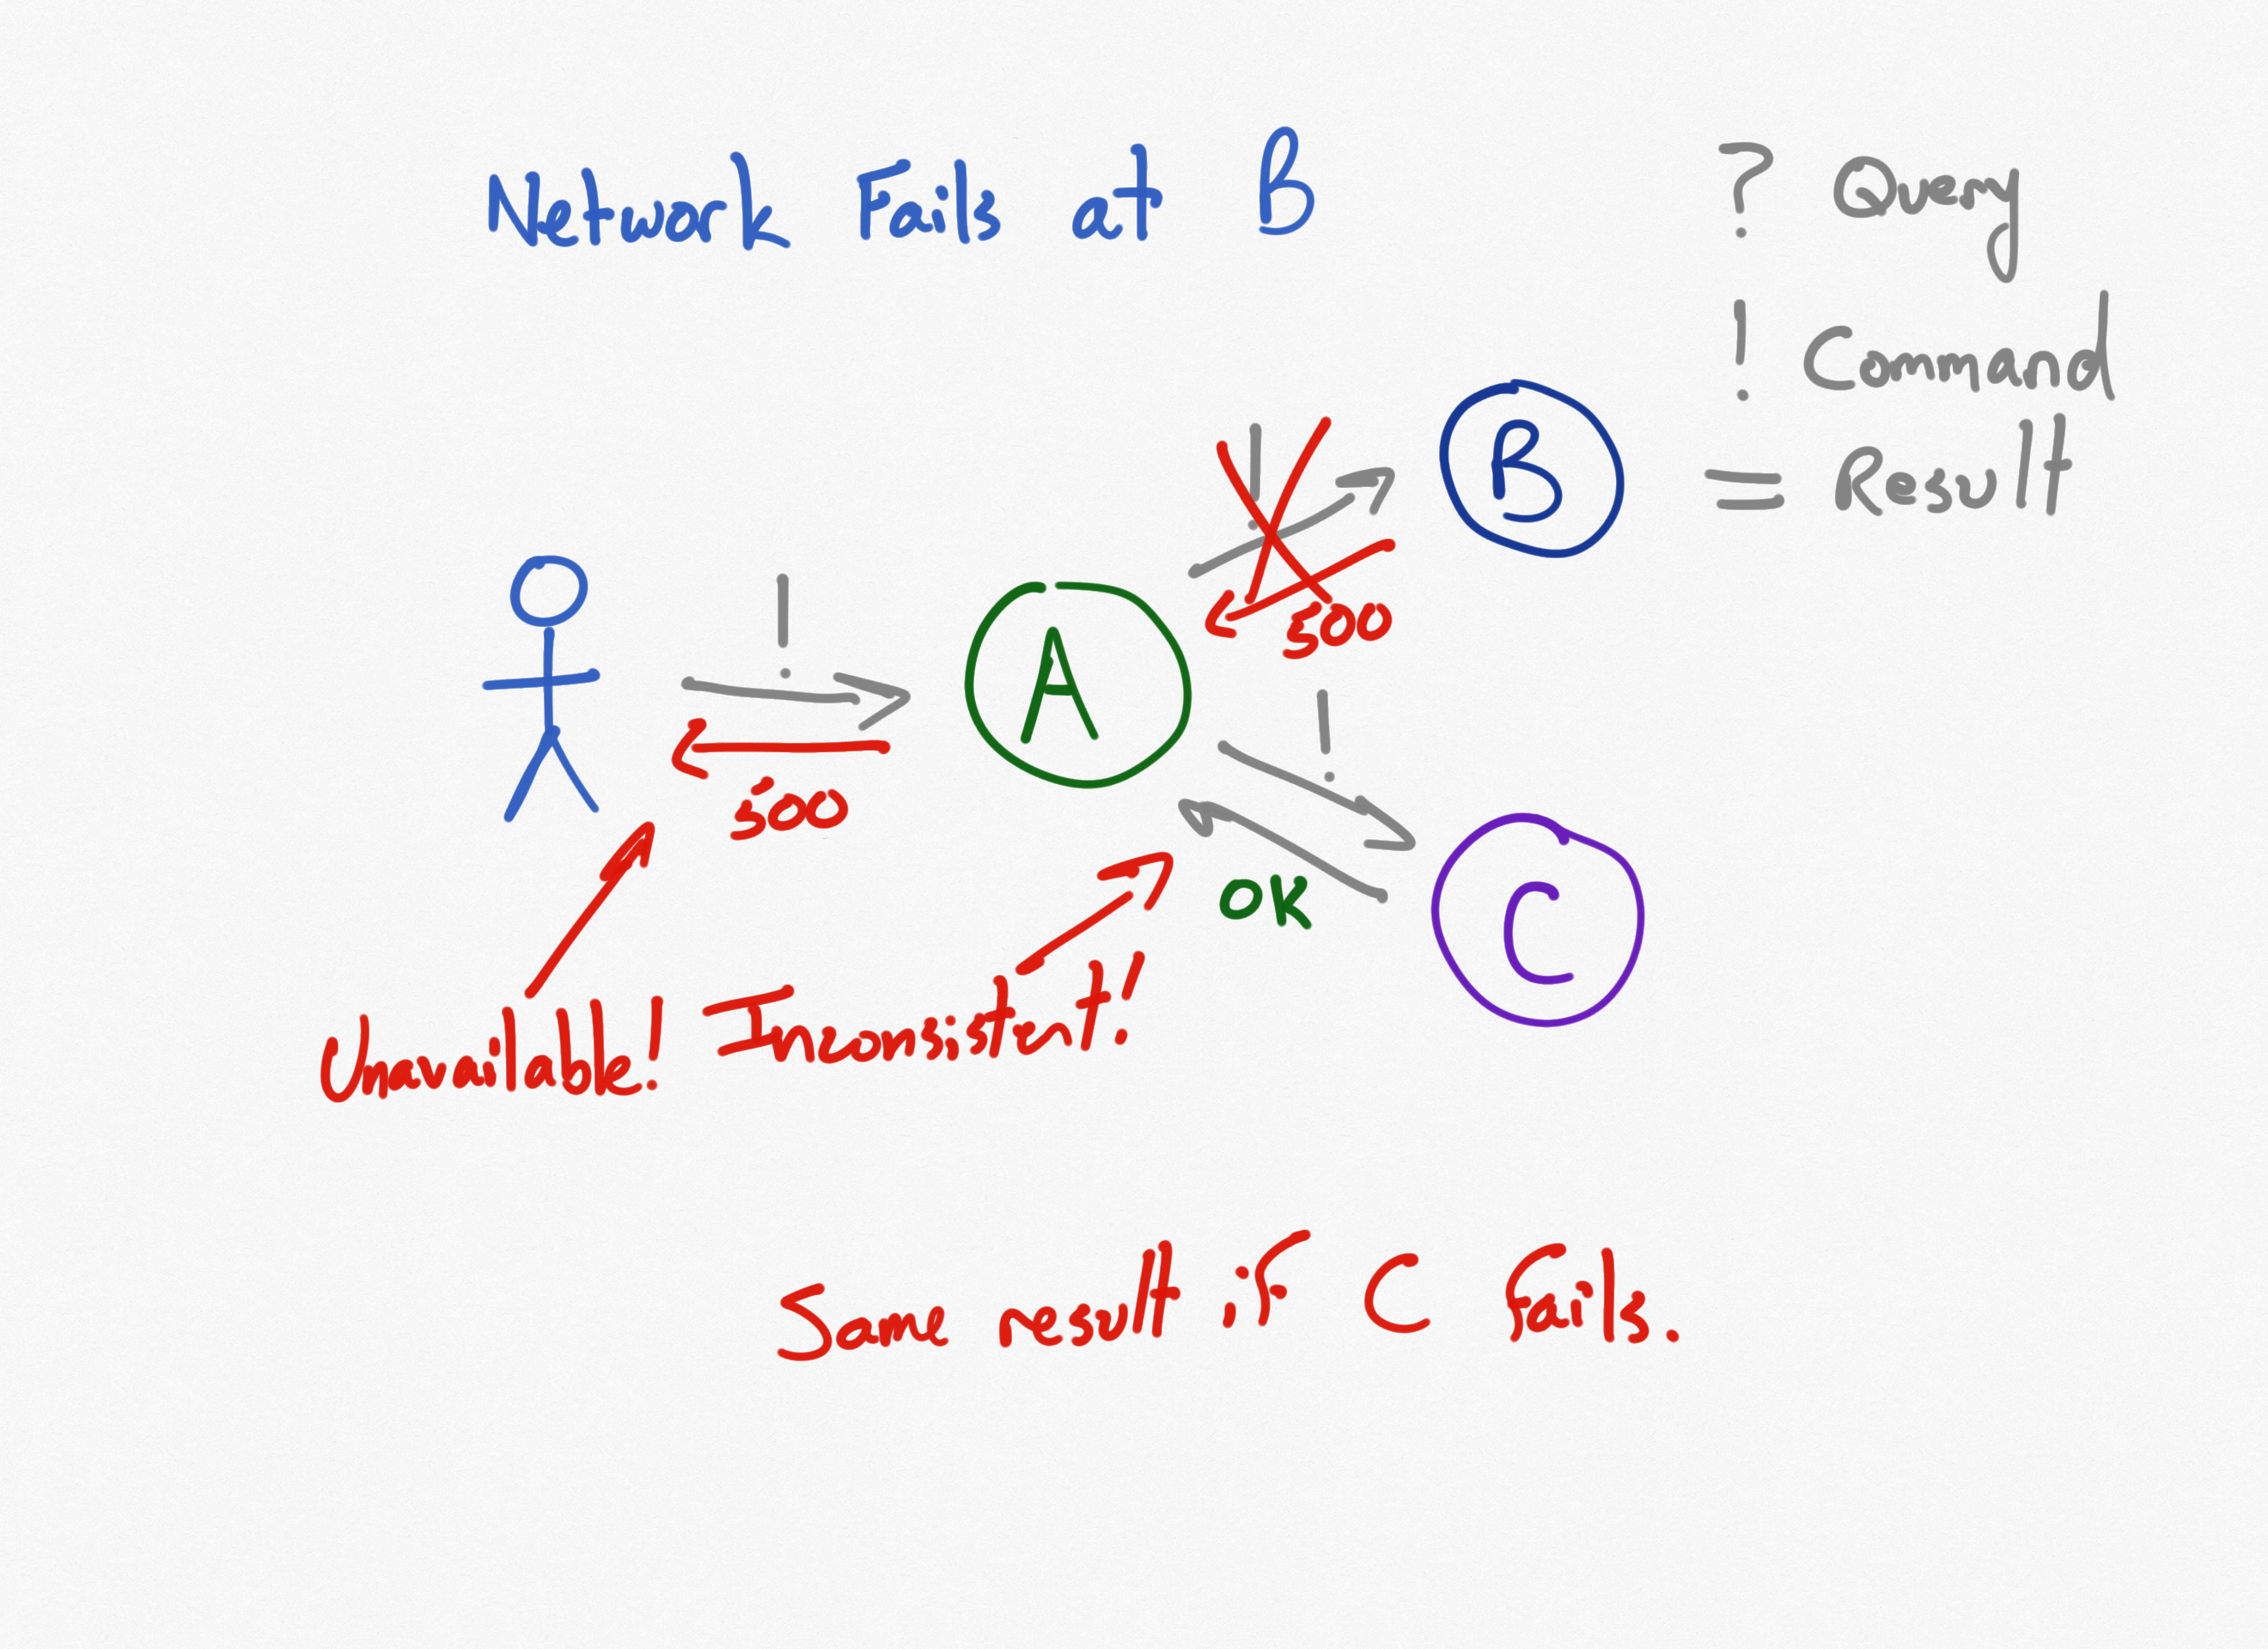 Network Fails at B
? Query
! Command
= Result
!
B
500
!
A
500
!
OK
C
Unavailable!
Inconsistent!
Same result if C fails.